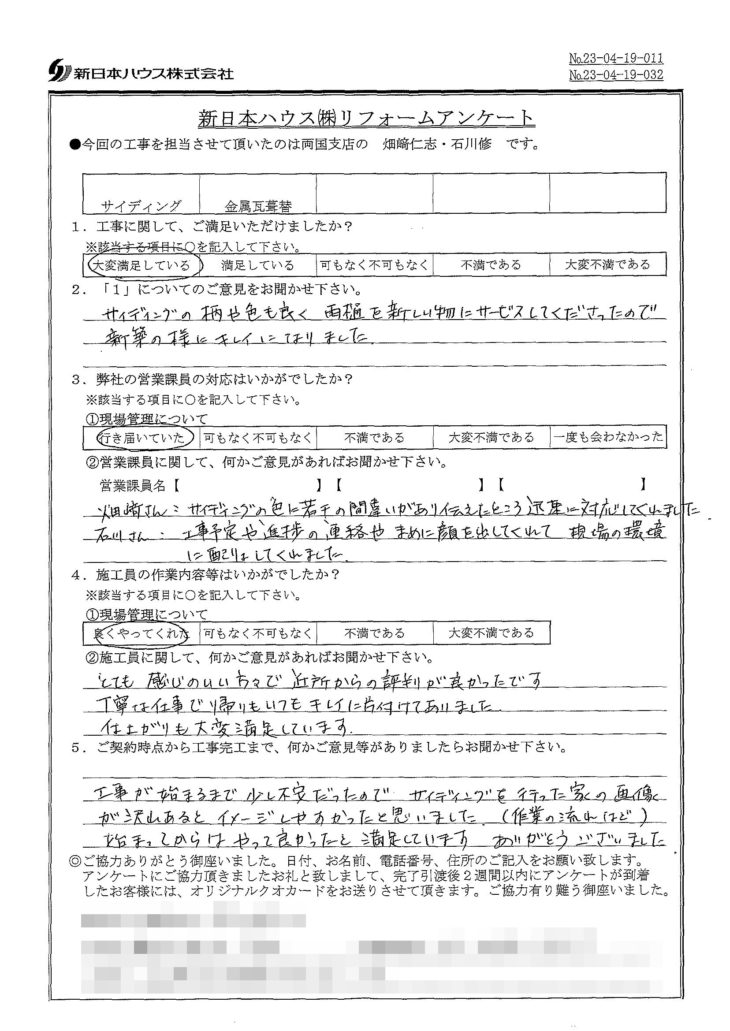 新日本ハウス株式会社
No.23-04-19-011
No.23-04-19-032
新日本ハウス㈱リフォームアンケート
●今回の工事を担当させて頂いたのは両国支店の 畑﨑仁志・石川修 です。
サイディング 金属瓦葺替
1．工事に関して、ご満足いただけましたか？
※該当する項目に○を記入して下さい。
大変満足している 満足している 可もなく不可もなく 不満である 大変不満である
2．「1」についてのご意見をお聞かせ下さい。
サイディングの柄や色も良く 雨樋を新しい物にサービスしてくださったので
新築の様にキレイになりました.
3．弊社の営業課員の対応はいかがでしたか？
※該当する項目に○を記入して下さい。
①現場管理について
行き届いていた 可もなく不可もなく 不満である 大変不満である 一度も会わなかった
②営業課員に関して、何かご意見があればお聞かせ下さい。
営業課員名【 】【 】【 】
畑﨑さん：サイディングの色に若干の間違いがあり伝えたところ迅速に対応してくれました.
石川さん：工事予定や進捗の連絡や まめに顔を出してくれて 現場の環境
に配慮してくれました.
4．施工員の作業内容等はいかがでしたか？
※該当する項目に○を記入して下さい。
①現場管理について
良くやってくれた 可もなく不可もなく 不満である 大変不満である
②施工員に関して、何かご意見があればお聞かせ下さい。
とても 感じのいい方々で 近所からの評判が良かったです
丁寧な仕事で帰りもいつもキレイに片付けてありました
仕上がりも大変満足しています.
5．ご契約時点から工事完工まで、何かご意見等がありましたらお聞かせ下さい。
工事が始まるまで少し不安だったので サイディングを行った家の画像
が沢山あると イメージしやすかったと思いました.（作業の流れなど）
始まってからは やって良かったと 満足しています ありがとうございました
◎ご協力ありがとう御座いました。日付、お名前、電話番号、住所のご記入をお願い致します。
アンケートにご協力頂きましたお礼と致しまして、完了引渡後２週間以内にアンケートが到着
したお客様には、オリジナルクオカードをお送りさせて頂きます。ご協力有り難う御座いました。